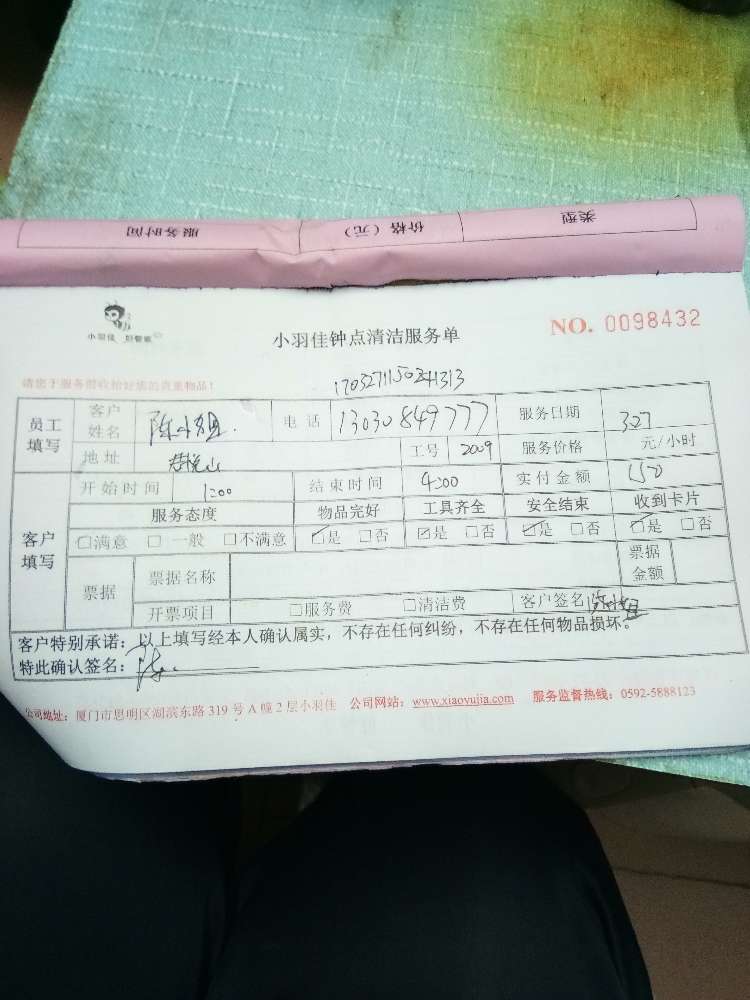 类型 价格（元） 服务时间
小羽佳
小羽佳钟点清洁服务单
NO. 0098432
请您于服务前收拾好您的贵重物品！
员工填写 客户姓名 陈小姐 电话 13030849777 服务日期 3.27
地址 工号 2009 服务价格 元/小时
客户填写 开始时间 1:00 结束时间 4:00 实付金额 150
服务态度 物品完好 工具齐全 安全结束 收到卡片
□满意 □一般 □不满意 ☑是 □否 ☑是 □否 ☑是 □否 ☑是 □否
票据 票据名称 票据金额
开票项目 □服务费 □清洁费 客户签名 陈小姐
客户特别承诺：以上填写经本人确认属实，不存在任何纠纷，不存在任何物品损坏。
特此确认签名：陈
公司地址：厦门市思明区湖滨东路 319 号 A 幢 2 层小羽佳 公司网站：www.xiaoyujia.com 服务监督热线：0592-5888123